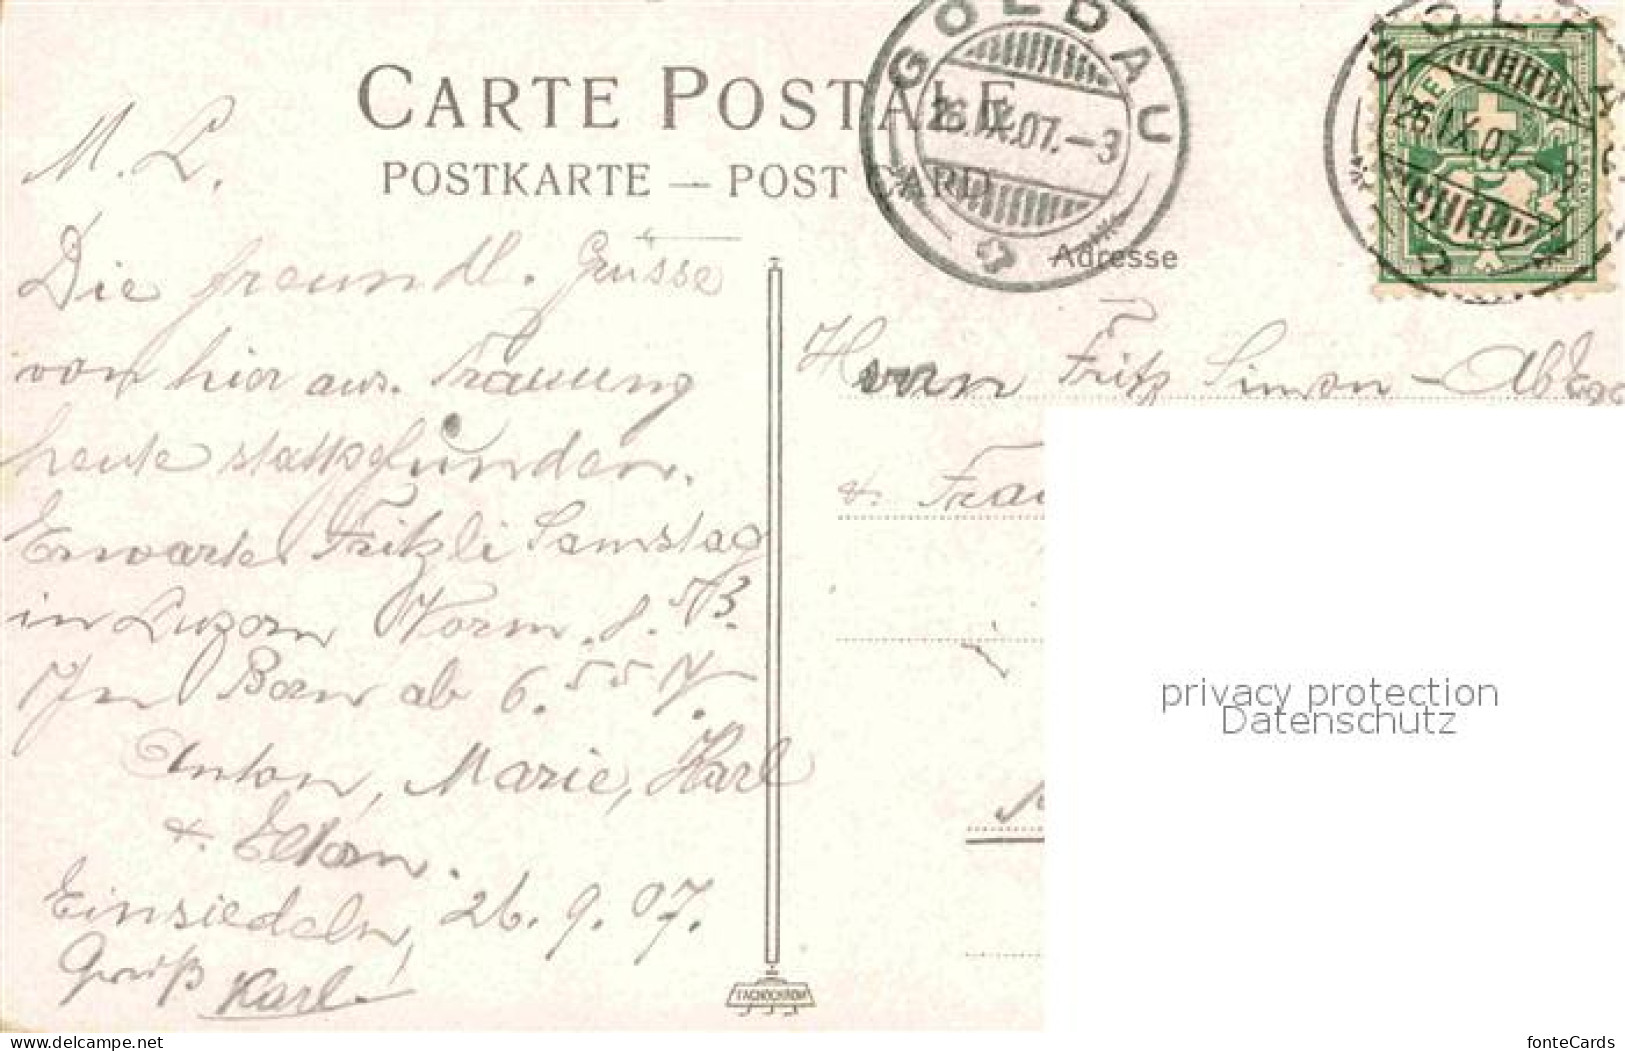 CARTE POSTALE
POSTKARTE — POST CARD
GOLDAU
26.IX.07.—3
GOLDAU
26.IX.07.—
Adresse
M. L.
Die freundl. Grüsse
von hier aus. Trauung
heute stattgefunden.
Erwarte Fritzli Samstag
in Luzern Vorm. 8.
Bern ab 6.55
Anton, Marie, Karl
& Eltern.
Einsiedeln, 26.9.07.
Gruß Karl
Herrn Fritz Simon-Ab
& Frau
privacy protection
Datenschutz
www.delcampe.net
fonteCards